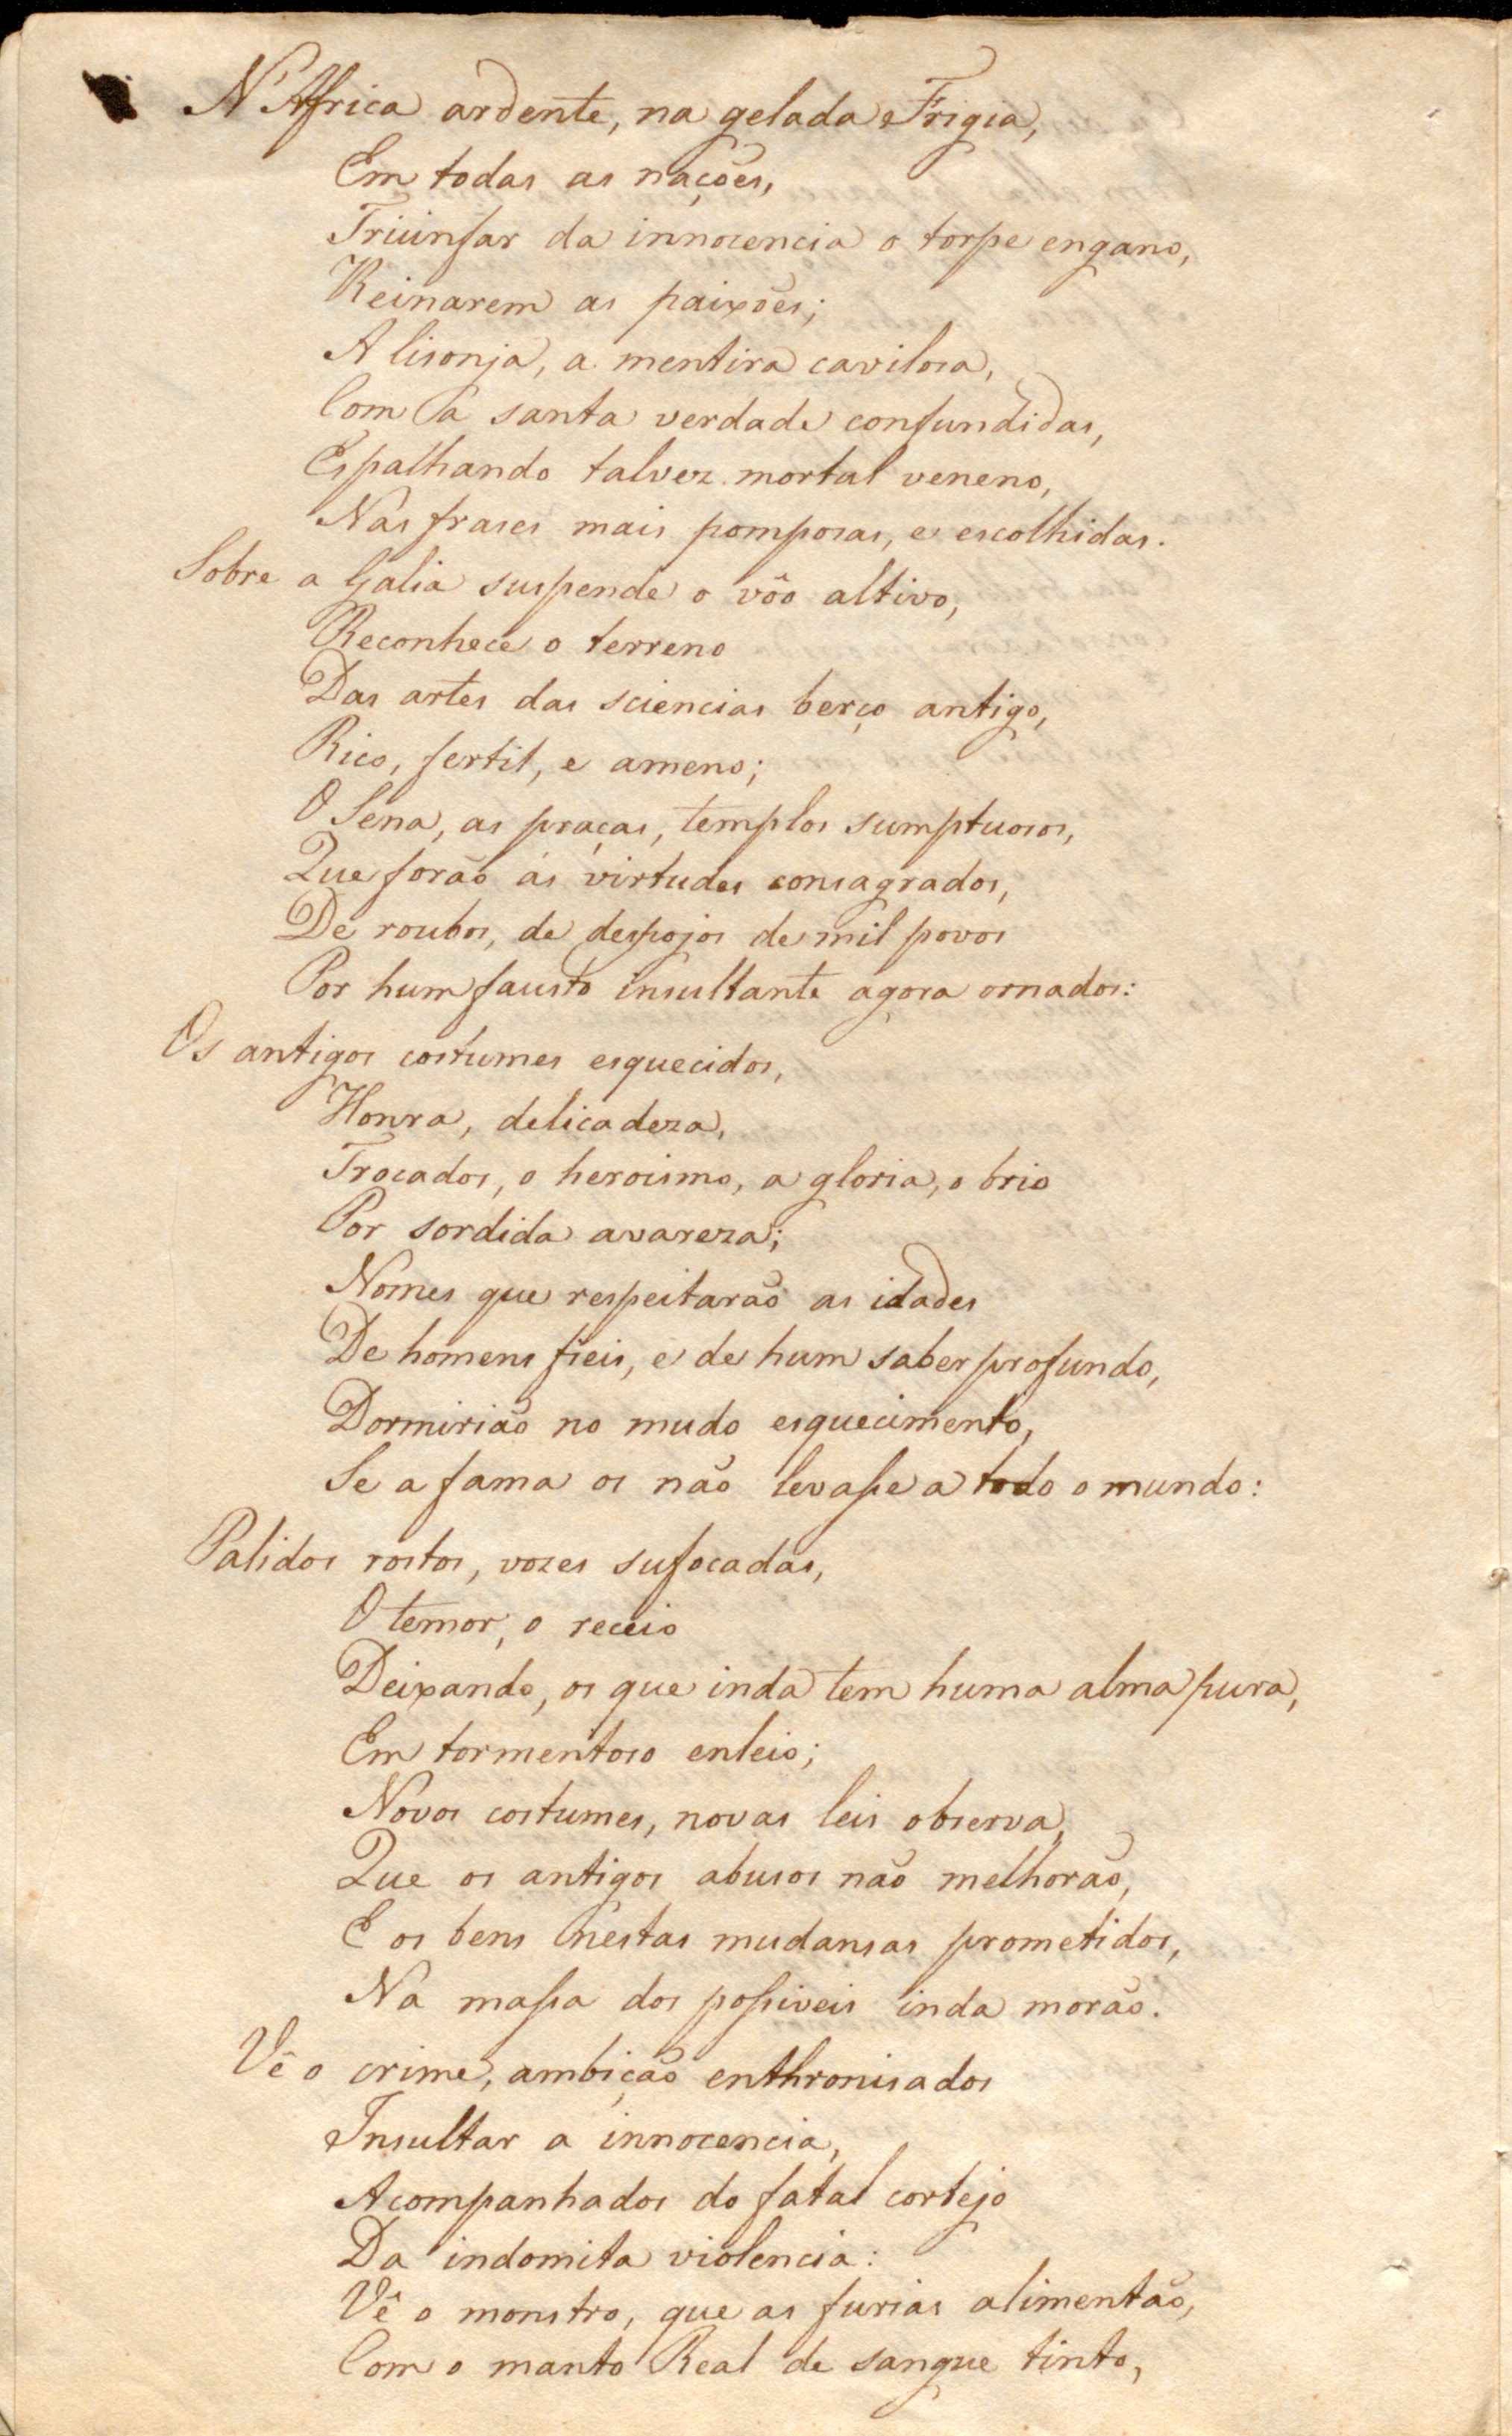 N'Africa ardente, na gelada Frigia,
Em todas as nações,
Triunfar da innocencia o torpe engano,
Reinarem as paixões;
A lisonja, a mentira cavilosa,
Com a santa verdade confundidas,
Espalhando talvez mortal veneno,
Nas frases mais pomposas, e escolhidas.
Sobre a Galia suspende o vôo altivo,
Reconhece o terreno
Das artes das sciencias berço antigo,
Rico, fertil, e ameno;
O Sena, as praças, templos sumptuosos,
Que forão ás virtudes consagrados,
De roubos, de despojos de mil povos
Por hum fausto insultante agora ornados:
Os antigos costumes esquecidos,
Honra, delicadeza,
Trocados, o heroismo, a gloria, o brio
Por sordida avareza;
Nomes que respeitarão as idades
De homens fieis, e de hum saber profundo,
Dormirião no mudo esquecimento,
Se a fama os não levasse a todo o mundo:
Palidos rostos, vozes sufocadas,
O temor, o receio
Deixando, os que inda tem huma alma pura,
Em tormentoso enleio;
Novos costumes, novas leis observa,
Que os antigos abusos não melhorão,
E os bens nestas mudansas prometidos,
Na massa dos possiveis inda morão.
Vê o crime, ambição enthronisados
Insultar a innocencia,
Acompanhados do fatal cortejo
Da indomita violencia:
Vê o monstro, que as furias alimentão,
Com o manto Real de sangue tinto,